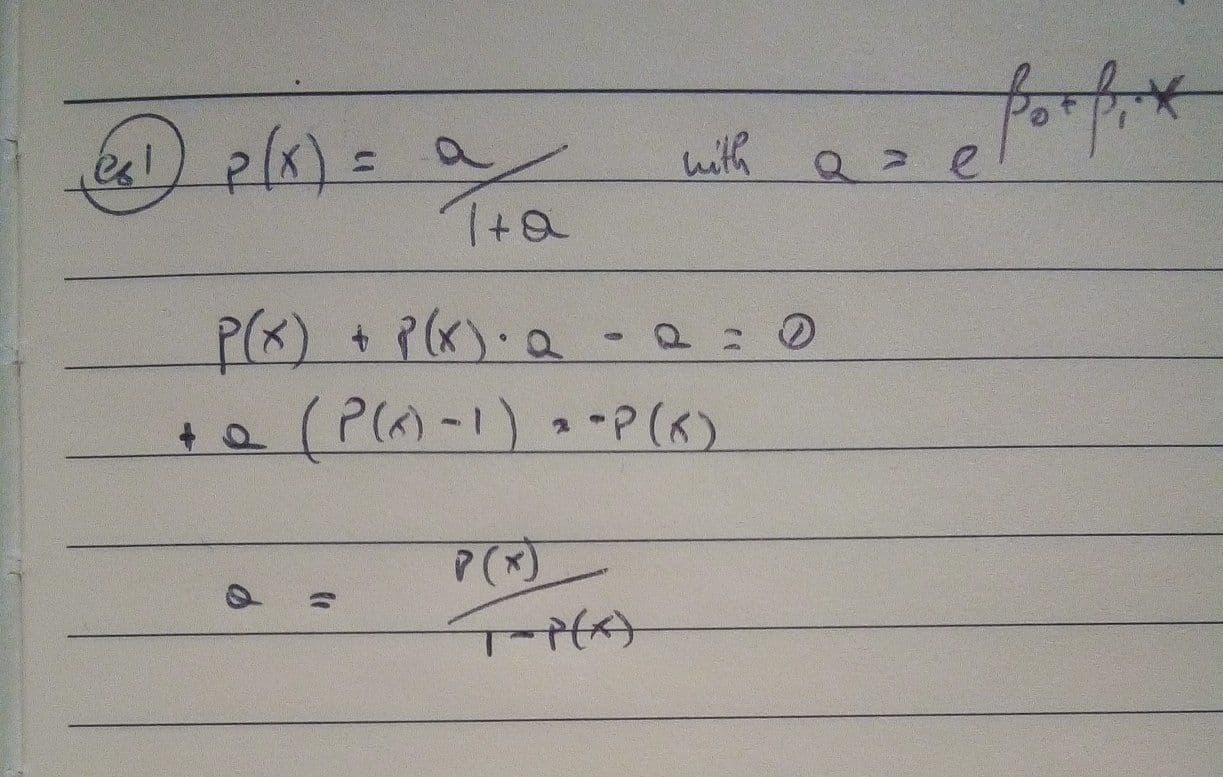 es1 p(x) = a / 1+a with a = e^β₀ + β₁·x
P(x) + P(x)·a - a = 0
+ a (P(x) - 1) = -P(x)
a = P(x) / 1 - P(x)